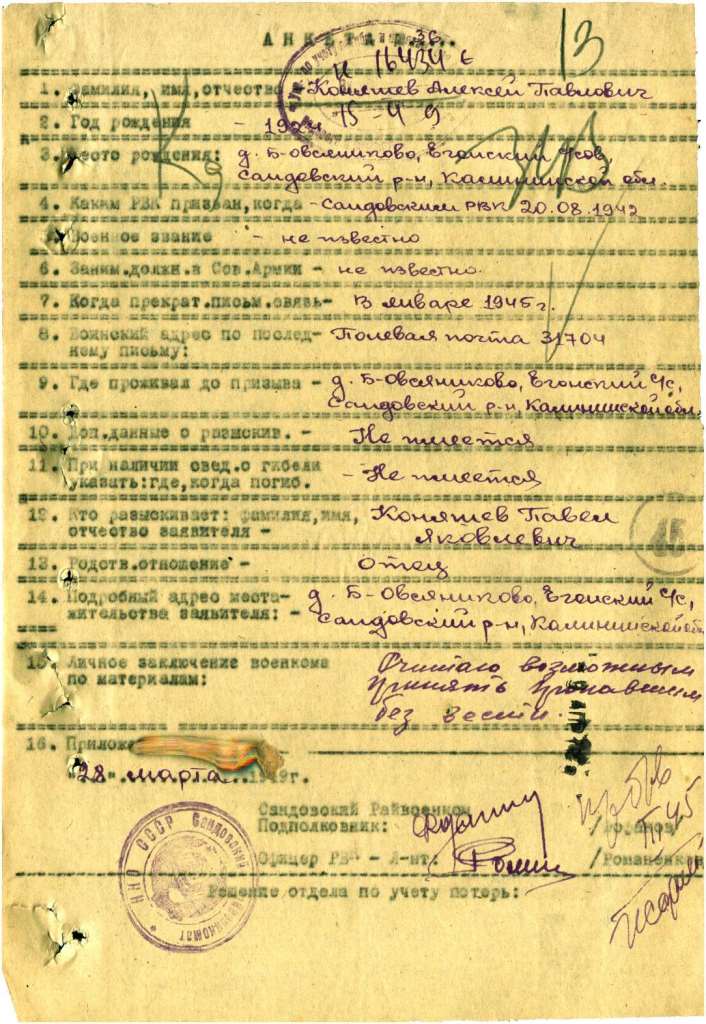 АНКЕТА
36
н 16434 с
13
1. Фамилия, имя, отчество Коняшев Алексей Павлович
15-4-9
2. Год рождения - 1924
3. Место рождения: д. Б-Овсяниково, Егонский с/сов,
Сандовский р-н, Калининской обл.
4. Каким РВК призван, когда - Сандовским РВК 20.08.1942
5. Военное звание - не известно
6. Заним.должн.в Сов.Армии - не известно.
7. Когда прекрат.письм.связь- В январе 1945 г.
8. Воинский адрес по послед- Полевая почта 31704
нему письму:
9. Где проживал до призыва - д. Б-Овсяниково, Егонский с/с,
Сандовский р-н, Калининской обл.
10. Доп.данные о разыскив. - Не имеется
11. При наличии свед.о гибели
указать:где,когда погиб. - Не имеется
12. Кто разыскивает: фамилия,имя, Коняшев Павел
отчество заявителя - Яковлевич
45
13. Родств.отношение - Отец
14. Подробный адрес места- д. Б-Овсяниково, Егонский с/с,
жительства заявителя: - Сандовский р-н, Калининской обл.
15. Личное заключение военкома Считаю возможным
по материалам: принять пропавшим
без вести.
16. Прилож
"28" марта 1949г.
Сандовский Райвоенком
Подполковник:
Офицер РВК - Л-нт: /Романенков
НКО СССР Сандовский
Решение отдела по учету потерь: